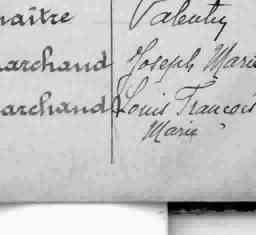 naître Valentin
marchand Joseph Marie
marchand Louis François
Marie